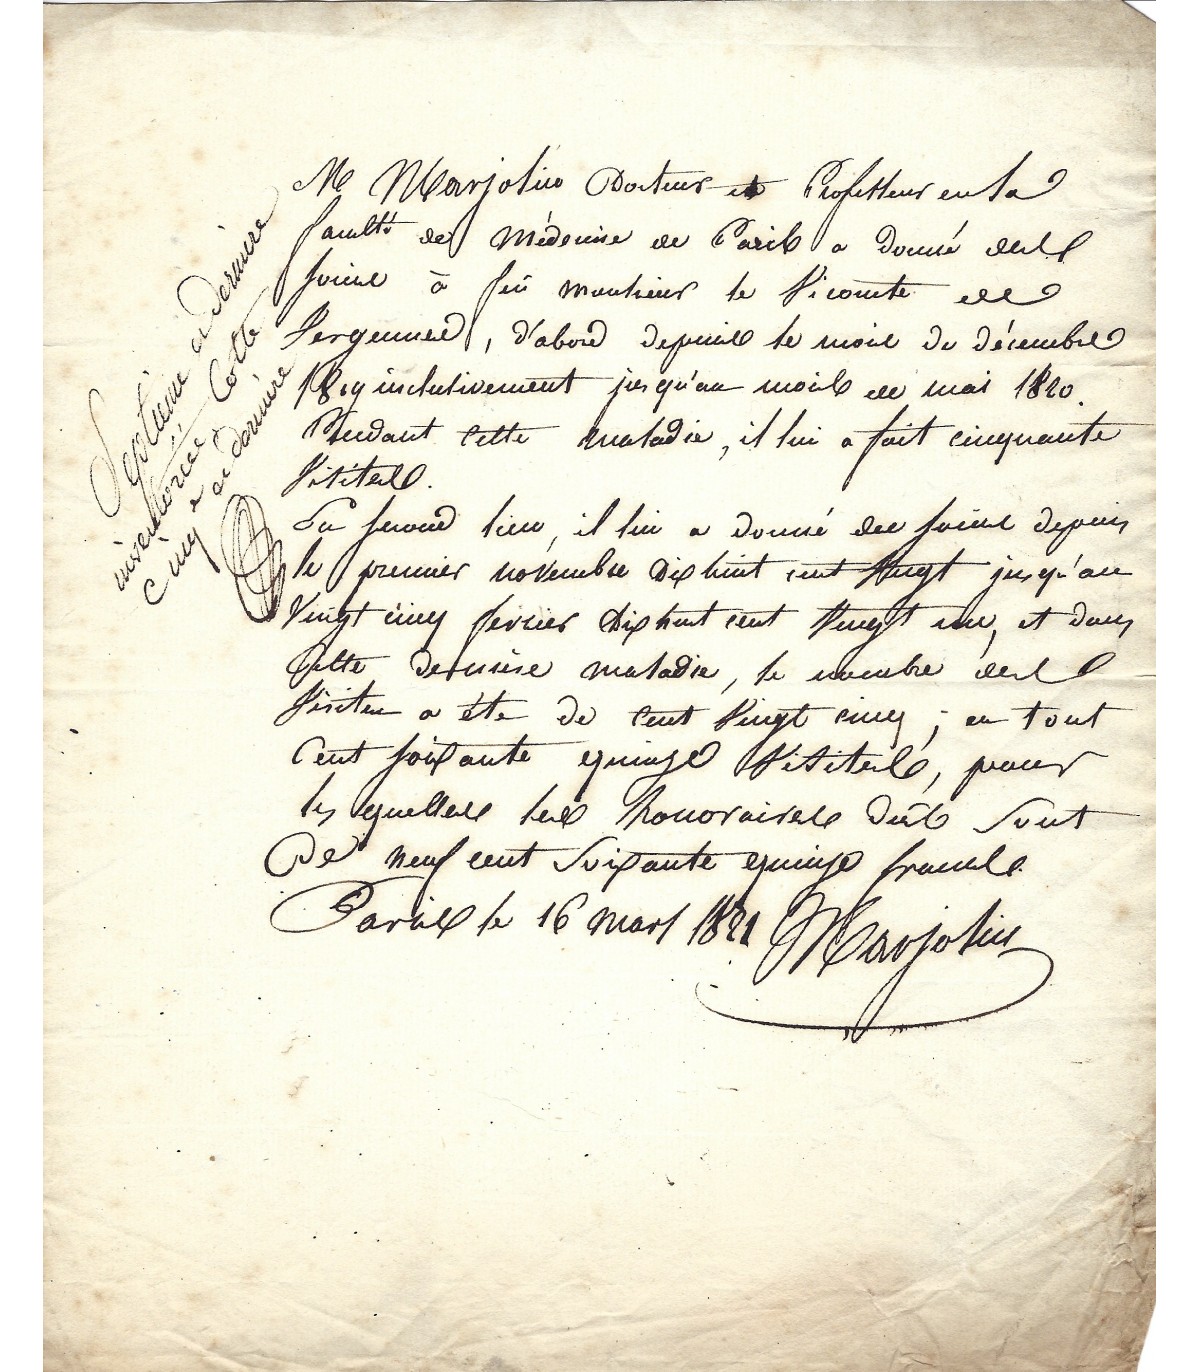 Mr Marjolin Docteur et Professeur en la
faculté de Médecine de Paris a donné des
soins à feu monsieur le Vicomte de
Vergennes, d'abord depuis le mois de décembre
1819 inclusivement jusqu'au mois de mai 1820.
Pendant cette maladie, il lui a fait cinquante
Visites.
En second lieu, il lui a donné des soins depuis
le premier novembre dix huit cent vingt jusqu'au
vingt cinq fevrier dix huit cent vingt un, et dans
cette dernière maladie, le nombre des
Visites a été de cent vingt cinq ; en tout
Cent soixante quinze Visites, pour
les quelles les honoraires dûs sont
De neuf cent soixante quinze francs.
Paris le 16 mars 1821 Marjolin
Septième et dernière
inventoriée Cotte
cinq et dernière